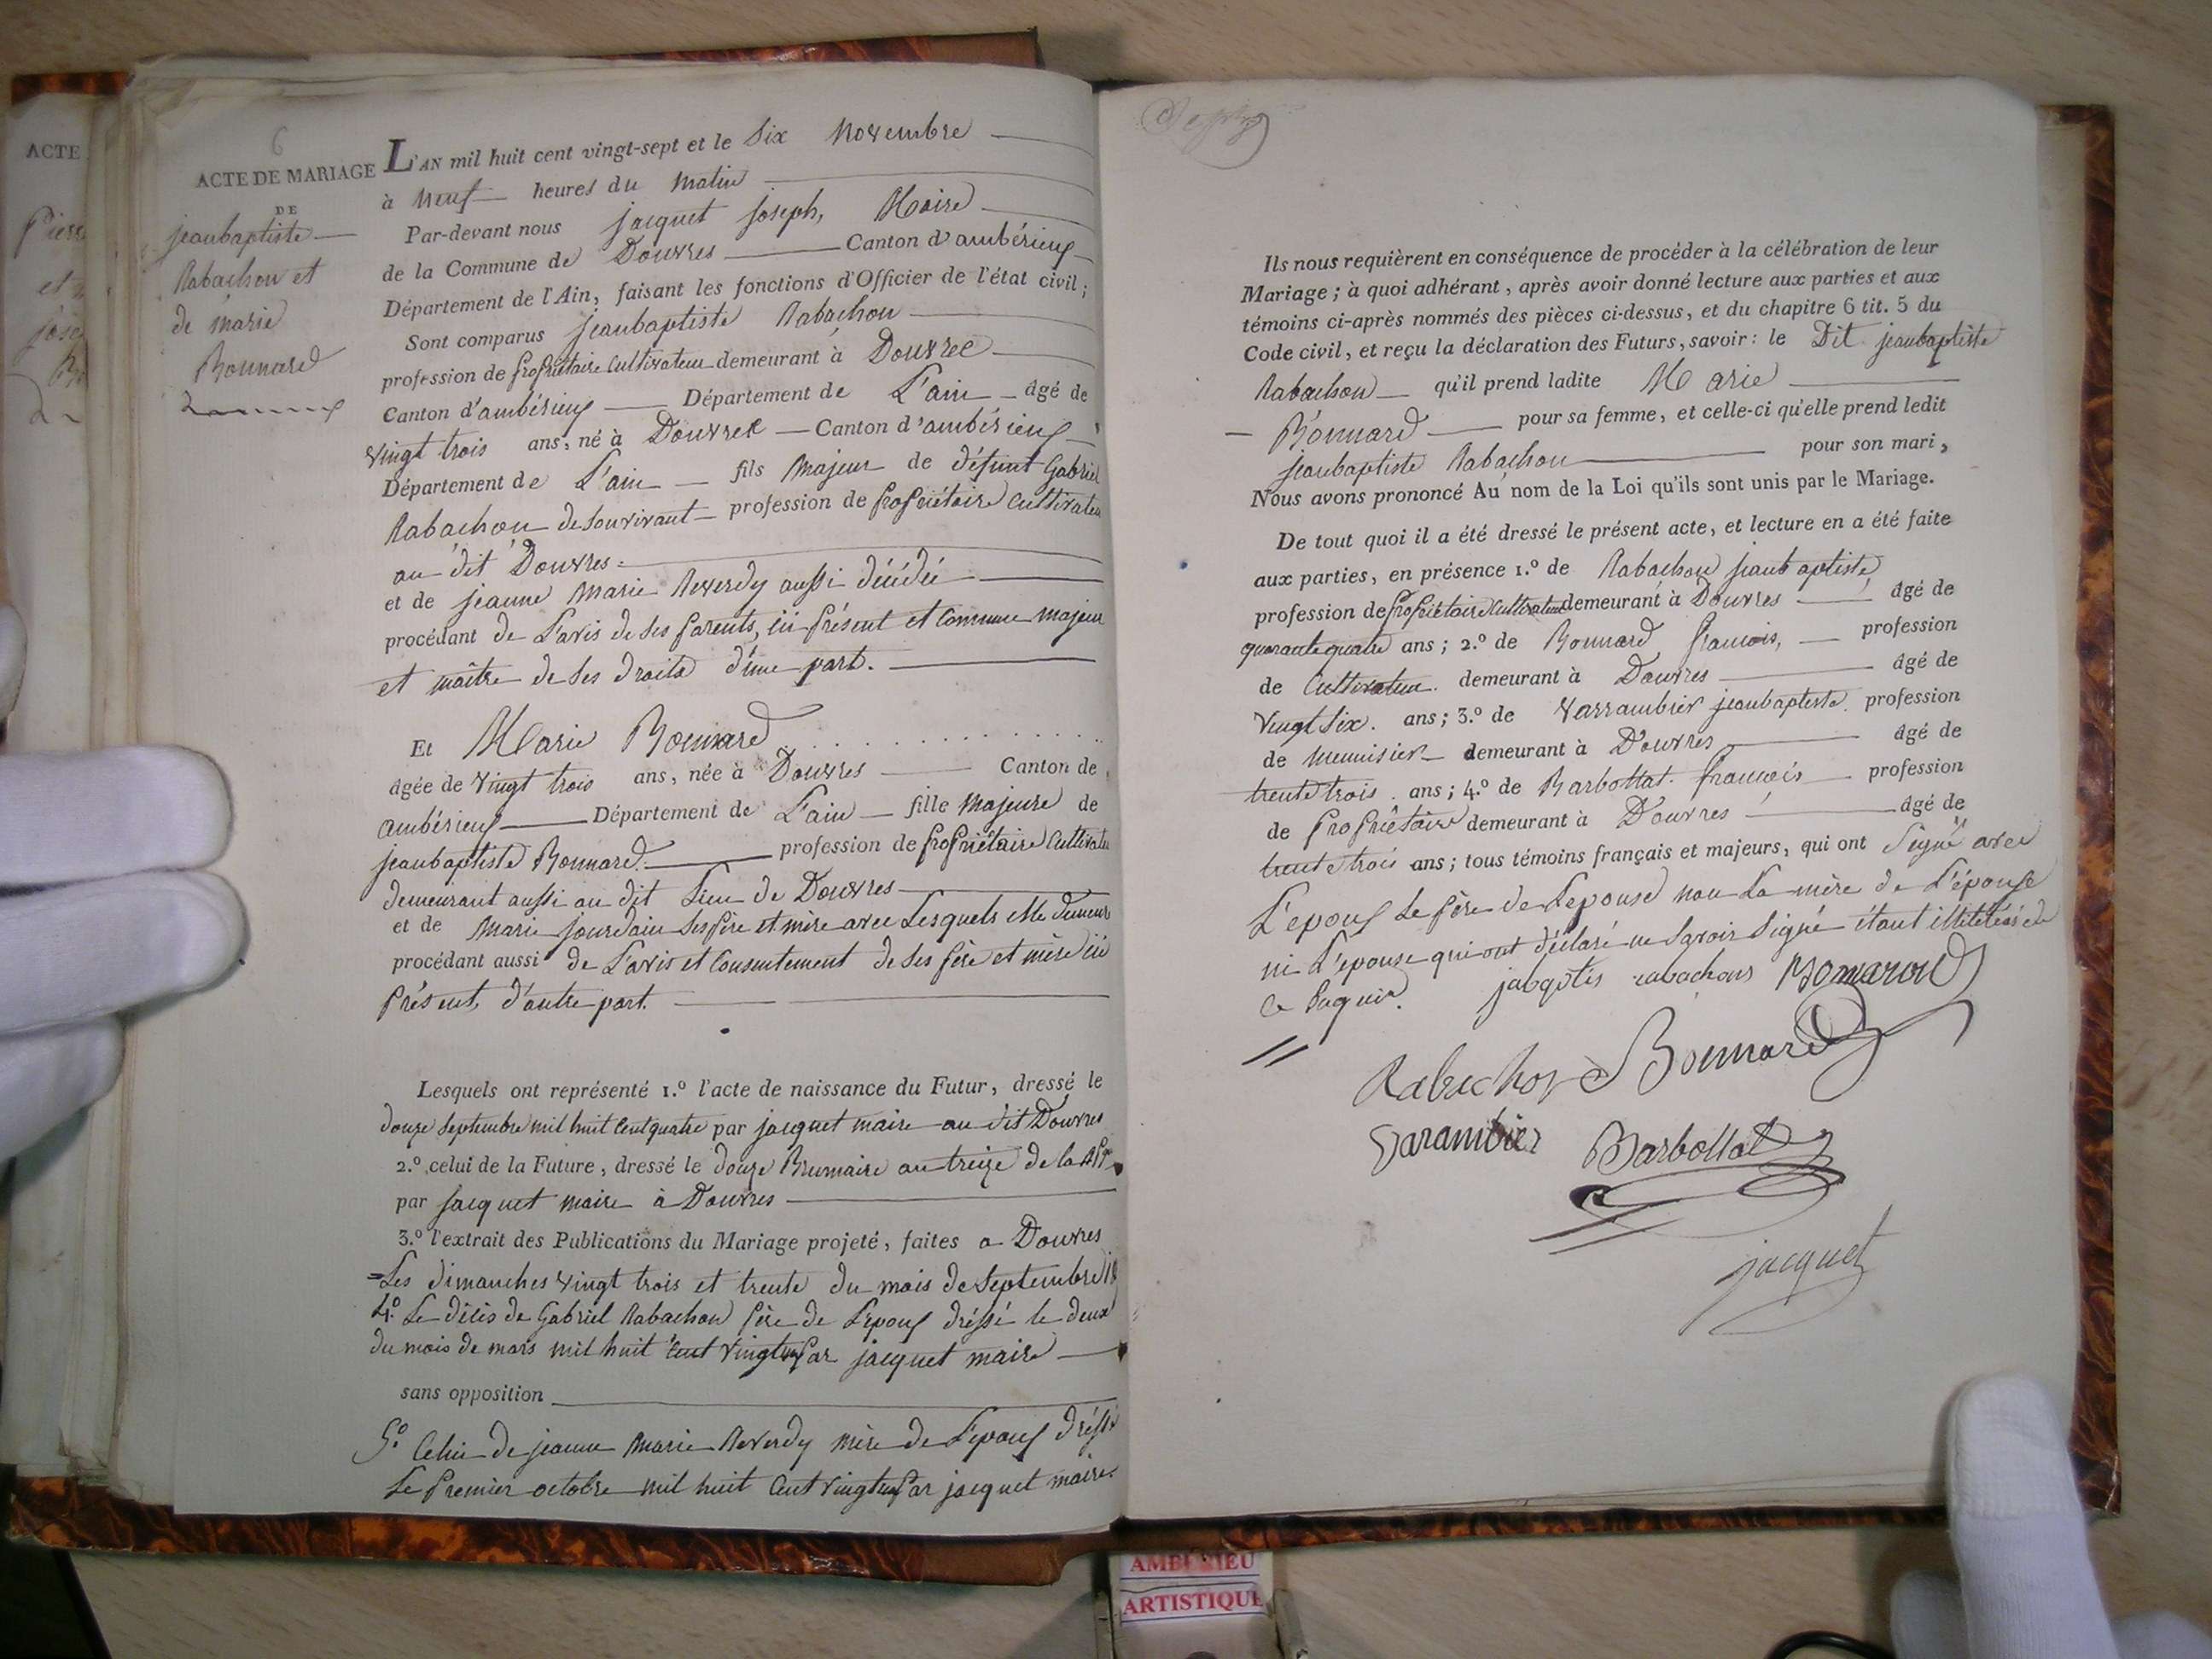 ACTE
Pierr
6
ACTE DE MARIAGE
DE
jeanbaptiste
Rabachon et
de marie
Bonnard
L'AN mil huit cent vingt-sept et le Six Novembre
à Neuf heures du Matin
Par-devant nous jacquet joseph, Maire
de la Commune de Douvres Canton d'ambérieux
Département de l'Ain, faisant les fonctions d'Officier de l'état civil;
Sont comparus jeanbaptiste Rabachon
profession de propriétaire Cultivateur demeurant à Douvres
Canton d'ambérieux Département de L'ain âgé de
vingt trois ans, né à Douvres Canton d'ambérieux
Département de L'ain fils Majeur de défunt Gabriel
Rabachon de souvivant profession de propriétaire Cultivateu
au dit Douvres.
et de jeanne Marie Reverdy aussi décédée
procédant de L'avis de ses parents, ici présent et Comme majeur
et maître de ses droits d'une part.
Et Marie Bonnard
âgée de vingt trois ans, née à Douvres Canton de
ambérieux Département de L'ain fille Majeure de
jeanbaptiste Bonnard profession de propriétaire Cultivateu
demeurant aussi au dit Lieu de Douvres
et de Marie jourdain ses père et mère avec Lesquels elle demeure
procédant aussi de L'avis et Consentement de ses père et mère ici
Présent, d'autre part.
Lesquels ont représenté 1.º l'acte de naissance du Futur, dressé le
douze Septembre mil huit Cent quatre par jacquet maire au dit Douvres
2.º celui de la Future, dressé le douze Brumaire an treize de la
par jacquet maire à Douvres
3.º l'extrait des Publications du Mariage projeté, faites a Douvres
Les dimanches vingt trois et trente du mois de Septembre
4.º Le décès de Gabriel Rabachon père de L'epoux dréssé le deux
du mois de mars mil huit Cent vingt par jacquet maire
sans opposition
5.º Celui de jeanne Marie Reverdy mère de L'epoux dréssé
Le Premier octobre mil huit Cent vingt par jacquet maire.
Ils nous requièrent en conséquence de procéder à la célébration de leur
Mariage; à quoi adhérant, après avoir donné lecture aux parties et aux
témoins ci-après nommés des pièces ci-dessus, et du chapitre 6 tit. 5 du
Code civil, et reçu la déclaration des Futurs, savoir: le Dit jeanbaptiste
Rabachon qu'il prend ladite Marie
Bonnard pour sa femme, et celle-ci qu'elle prend ledit
jeanbaptiste Rabachon pour son mari,
Nous avons prononcé Au nom de la Loi qu'ils sont unis par le Mariage.
De tout quoi il a été dressé le présent acte, et lecture en a été faite
aux parties, en présence 1.º de Rabachon jeanbaptiste
profession de propriétaire Cultivateur demeurant à Douvres âgé de
quarante quatre ans; 2.º de Bonnard francois, profession
de Cultivateur demeurant à Douvres âgé de
vingt Six. ans; 3.º de Varrambier jeanbaptiste profession
de Menuisier demeurant à Douvres âgé de
trente trois ans; 4.º de Barbottat francois profession
de Propriétaire demeurant à Douvres âgé de
trente trois ans; tous témoins français et majeurs, qui ont Signé avec
L'epoux Le père de L'epouse non La mère de L'épouse
ni L'epouse qui ont déclaré ne Savoir Signé étant illitéré
ce Requis. rabachons Bonnarou
Rabachon Bonnard
Varambier Barbottat
jacquet
AMBERIEU
ARTISTIQUE